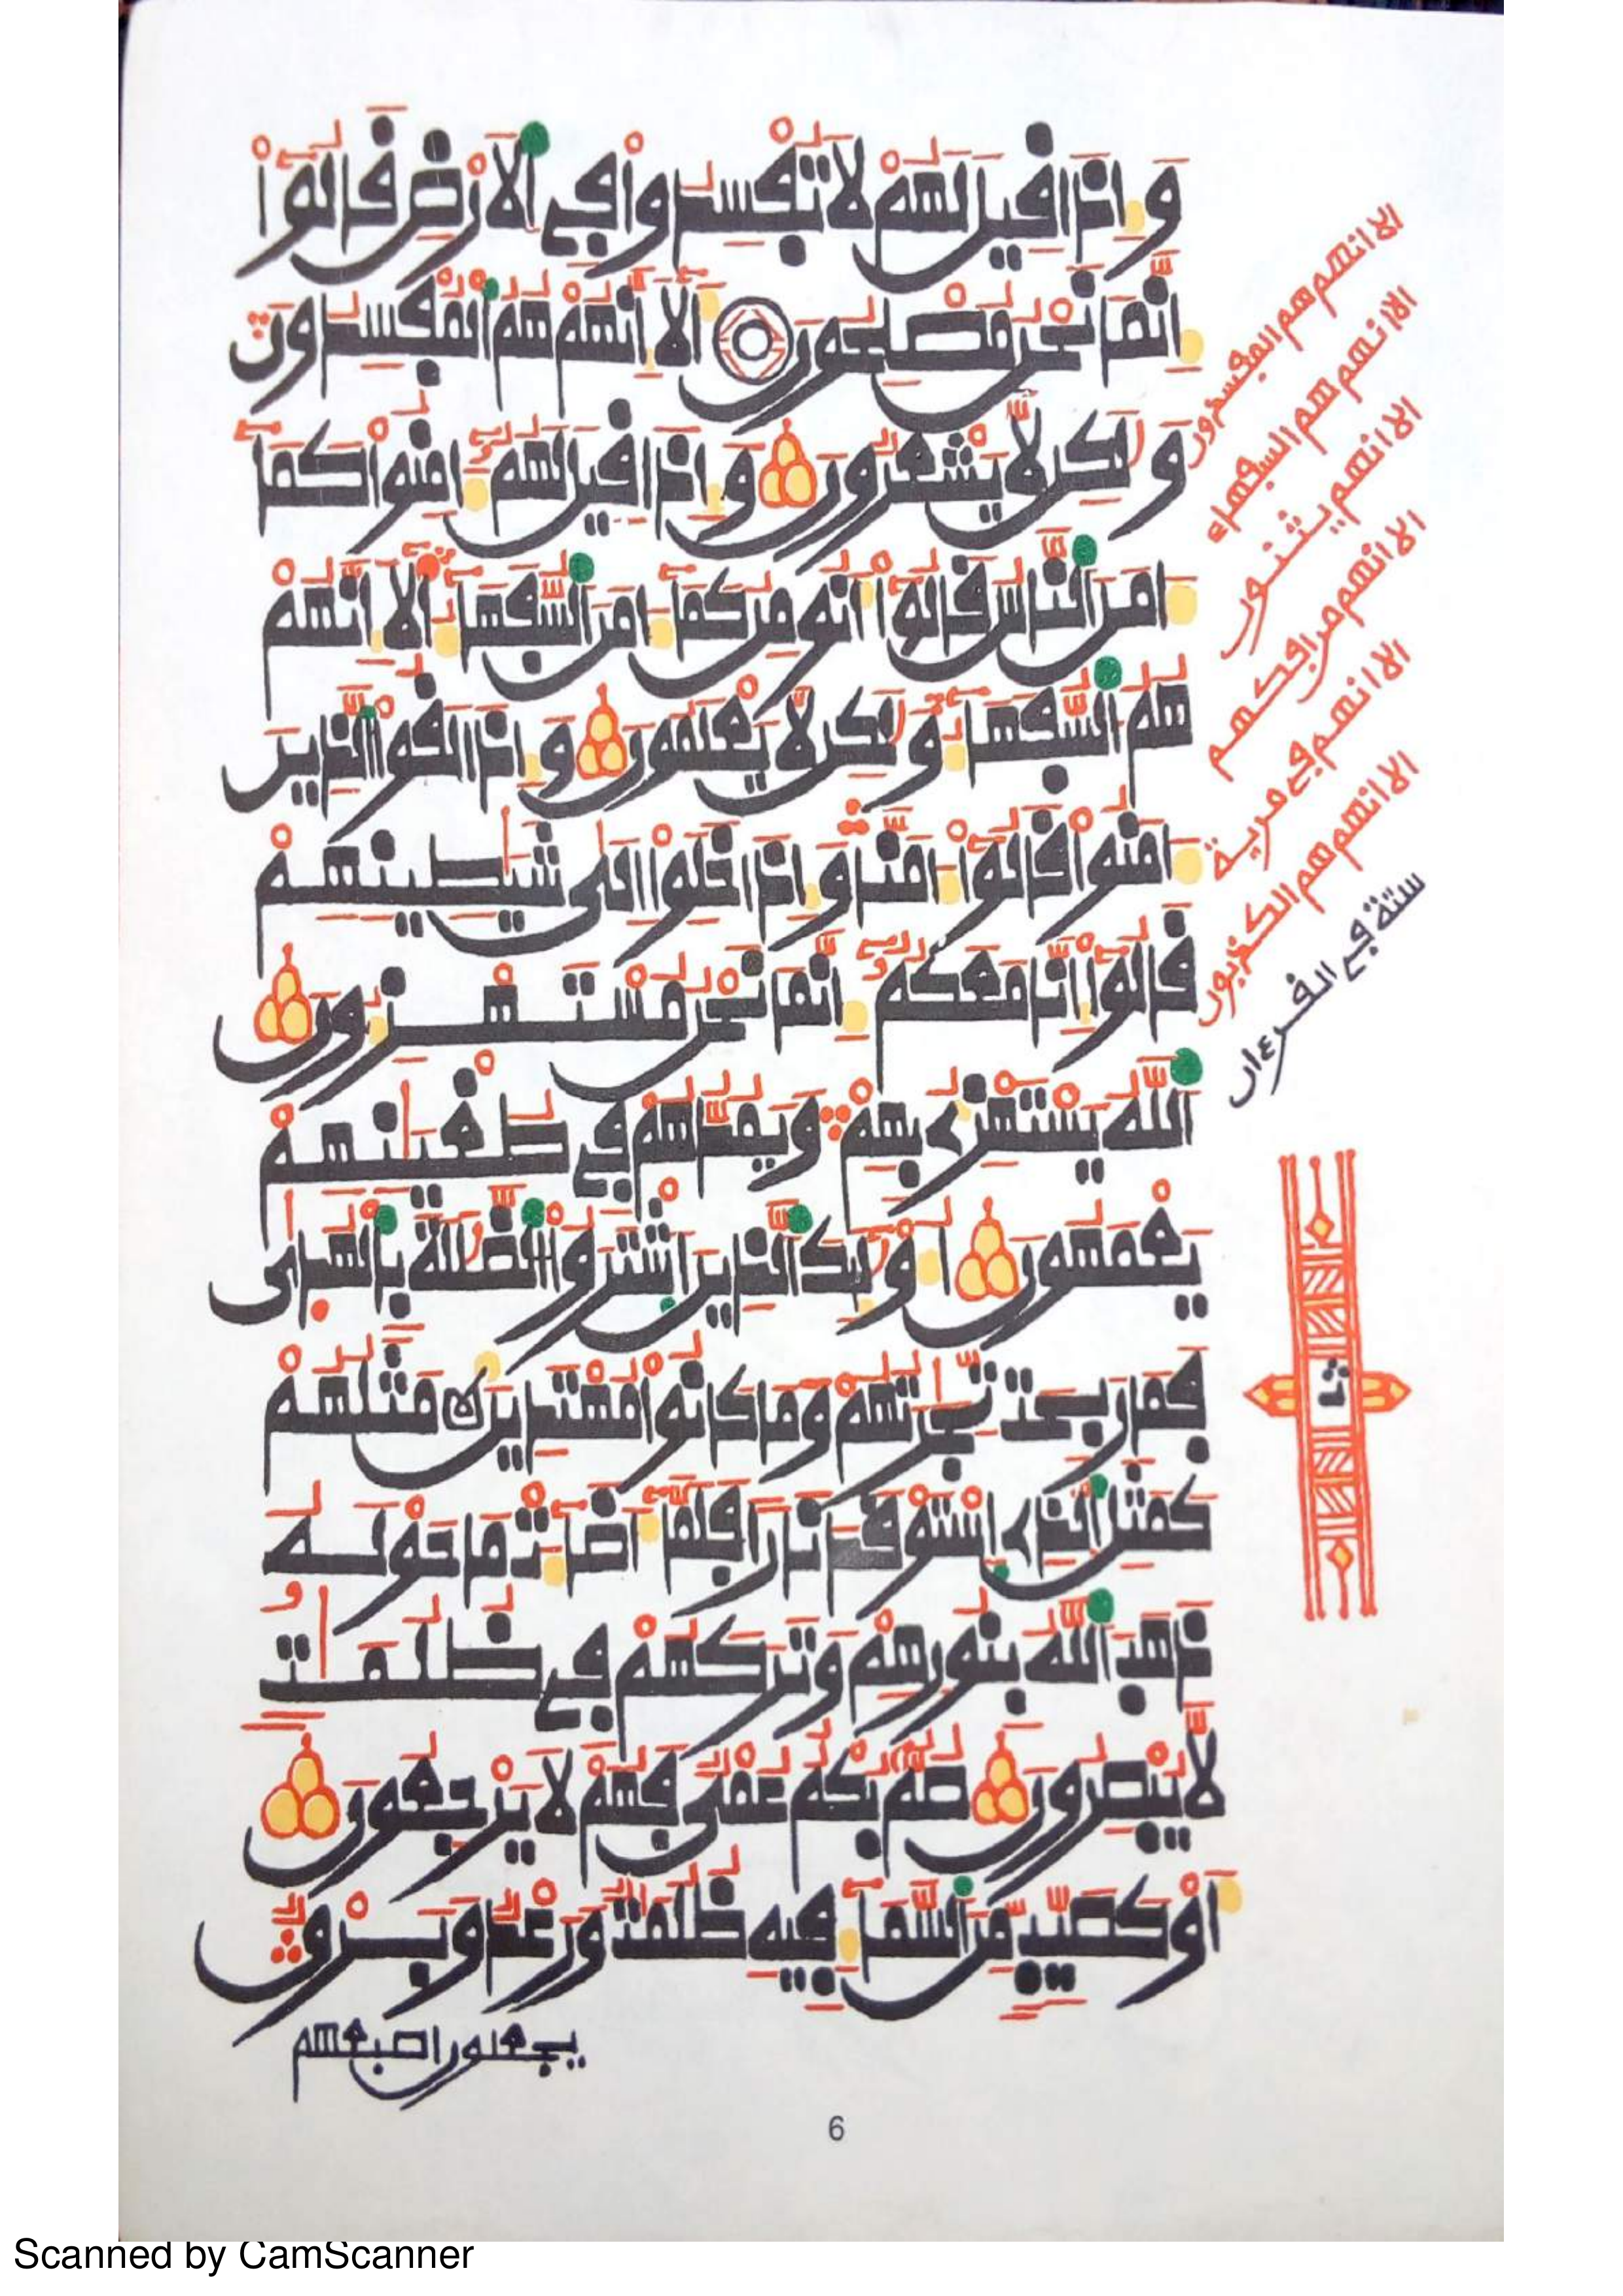 وإذا قيل لهم لا تفسدوا في الأرض قالوا
إنما نحن مصلحون ألا إنهم هم المفسدون
ولكن لا يشعرون وإذا قيل لهم ءامنوا كما
ءامن الناس قالوا أنومن كما ءامن السفهاء ألا إنهم
هم السفهاء ولكن لا يعلمون وإذا لقوا الذين
ءامنوا قالوا ءامنا وإذا خلوا الى شيطينهم
قالوا إنا معكم إنما نحن مستهزءون
الله يستهزئ بهم ويمدهم في طغينهم
يعمهون أولئك الذين اشتروا الضللة بالهدى
فما ربحت تجرتهم وما كانوا مهتدين مثلهم
كمثل الذي استوقد نارا فلما أضاءت ما حوله
ذهب الله بنورهم وتركهم في ظلمت
لا يبصرون صم بكم عمي فهم لا يرجعون
أو كصيب من السماء فيه ظلمت ورعد وبرق
يجعلون اصبعهم
الا انهم هم المفسدون
الا انهم هم السفهاء
الا انهم يثنون
الا انهم من افكهم
الا انهم في مرية
الا انهم هم الكذبون
ستة في القرءان
ث
6
Scanned by CamScanner